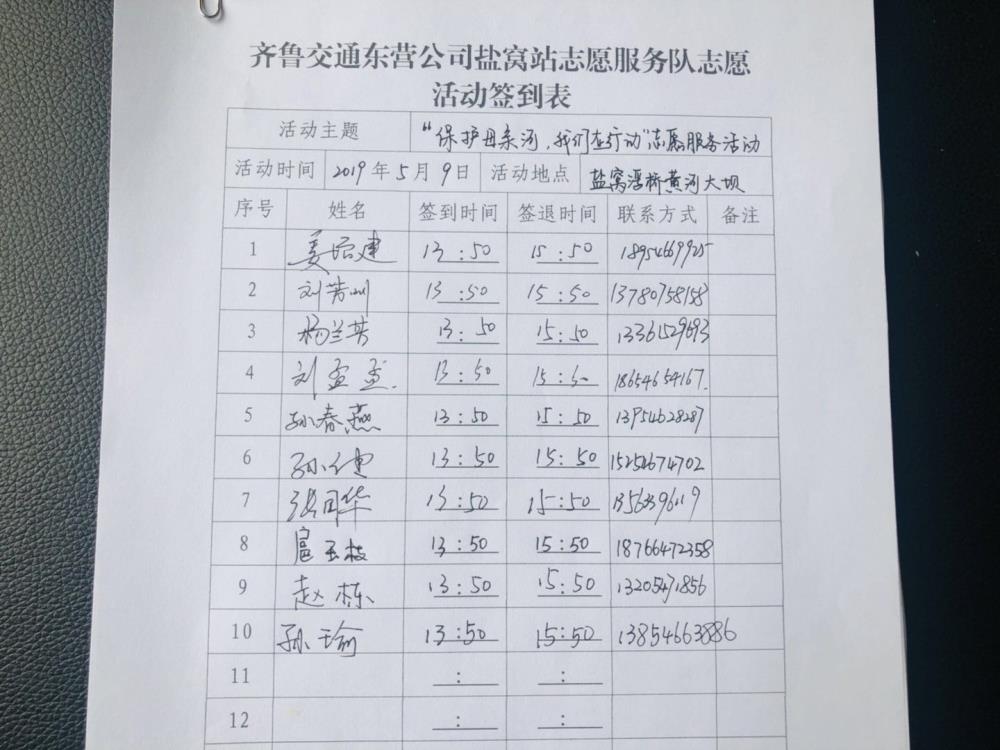 齐鲁交通东营公司盐窝站志愿服务队志愿
活动签到表
活动主题 “保护母亲河,我们在行动”志愿服务活动
活动时间 2019年5月9日 活动地点 盐窝浮桥黄河大坝
序号 姓名 签到时间 签退时间 联系方式 备注
1 姜培建 13:50 15:50 18954669925
2 刘芳 13:50 15:50 13780758158
3 杨兰芳 13:50 15:50 13361529693
4 刘孟孟. 13:50 15:50 18654654167.
5 孙春燕 13:50 15:50 13954628287
6 孙健 13:50 15:50 15254674702
7 张同华 13:50 15:50
8 扈玉枝 13:50 15:50 18766472358
9 赵栋 13:50 15:50 13205471856
10 孙瑜 13:50 15:50 13854663886
11 : :
12 : :